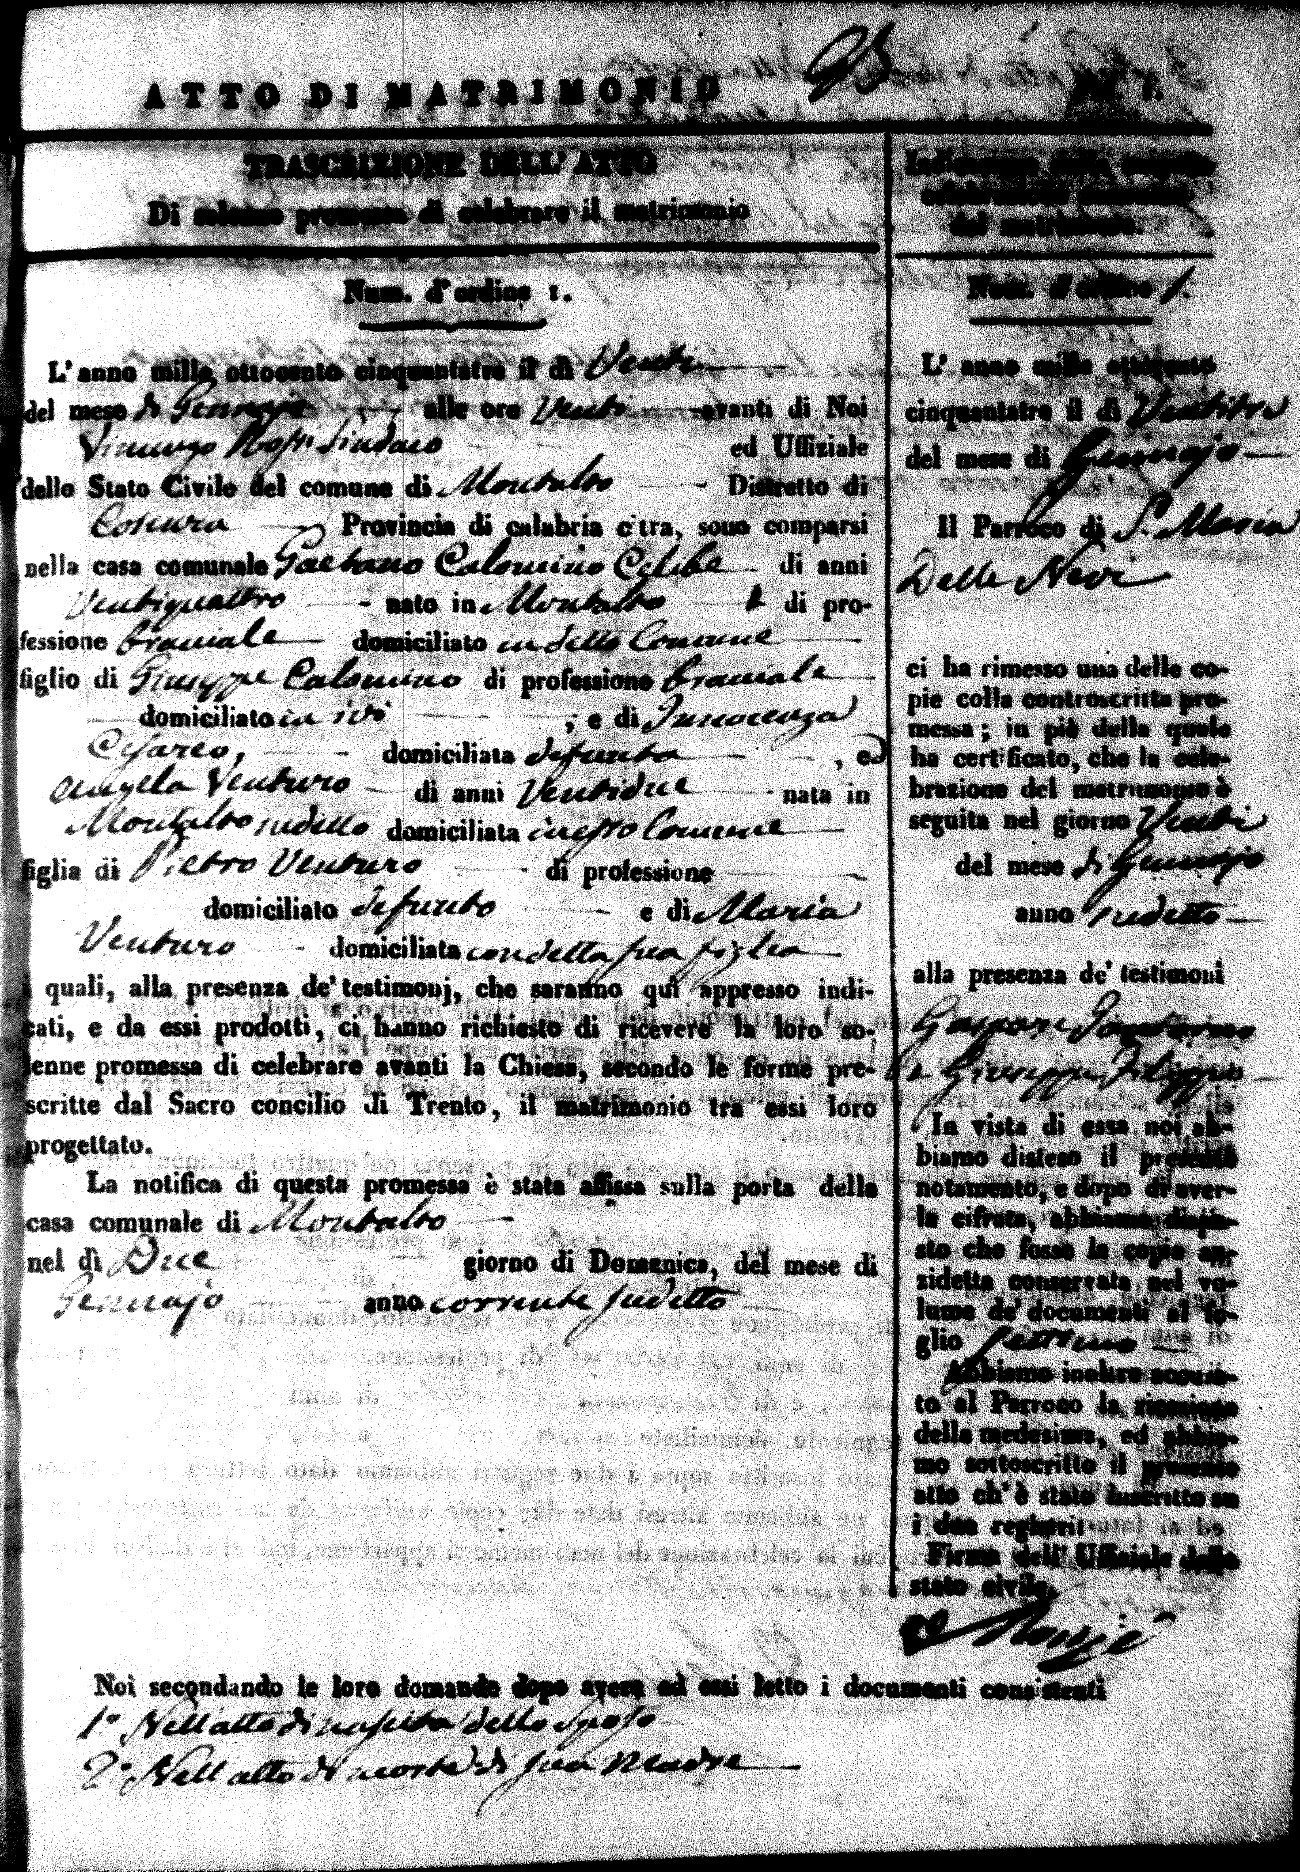 ATTO DI MATRIMONIO
TRASCRIZIONE DELL'ATTO
Di solenne promessa di celebrare il matrimonio
Num. d'ordine 1.
L'anno mille ottocento cinquantatre il dì Venti
del mese di Gennajo alle ore Venti avanti di Noi
Sindaco ed Uffiziale
dello Stato Civile del comune di Montalto Distretto di
Cosenza Provincia di calabria citra, sono comparsi
nella casa comunale Gaetano Calomino Celibe di anni
Ventiquattro nato in Montalto di pro-
fessione Braciale domiciliato in detto Comune
figlio di Giuseppe Calomino di professione braciale
domiciliato in ivi , e di Innocenza
Cesareo, domiciliata defunta , ed
Angela Venturo di anni Ventidue nata in
Montalto sudetto domiciliata in esso Comune
figlia di Pietro Venturo di professione
domiciliato defunto e di Maria
Venturo domiciliata con detta sua figlia
i quali, alla presenza de' testimonj, che saranno qui appresso indi-
cati, e da essi prodotti, ci hanno richiesto di ricevere la loro so-
lenne promessa di celebrare avanti la Chiesa, secondo le forme pre-
scritte dal Sacro concilio di Trento, il matrimonio tra essi loro
progettato.
La notifica di questa promessa è stata affissa sulla porta della
casa comunale di Montalto
nel dì Due giorno di Domenica, del mese di
Gennajo anno corrente sudetto
Noi secondando le loro domande dopo avere ad essi letto i documenti consistenti
1° Nell'atto di nascita dello Sposo
2° Nell'atto di morte di sua madre
del matrimonio.
Num. d'ordine 1.
L'anno mille ottocento
cinquantatre il dì Ventitre
del mese di Gennajo
Il Parroco di S. Maria
Delle Nevi
ci ha rimesso una delle co-
pie colla controscritta pro-
messa; in piè della quale
ha certificato, che la cele-
brazione del matrimonio è
seguita nel giorno Venti
del mese di Gennajo
anno sudetto
alla presenza de' testimoni
Gaspare
e Giuseppe Filippo
In vista di essa noi ab-
biamo disteso il presente
notamento, e dopo di aver-
la cifrata, abbiamo dispo-
sto che fosse la copia an-
zidetta conservata nel vo-
lume de' documenti al fo-
glio settimo
Abbiamo inoltre accusa-
to al Parroco la ricezione
della medesima, ed abbia-
mo sottoscritto il presente
atto ch' è stato inscritto su
i due registri
Firma dell' Uffiziale dello
stato civile.